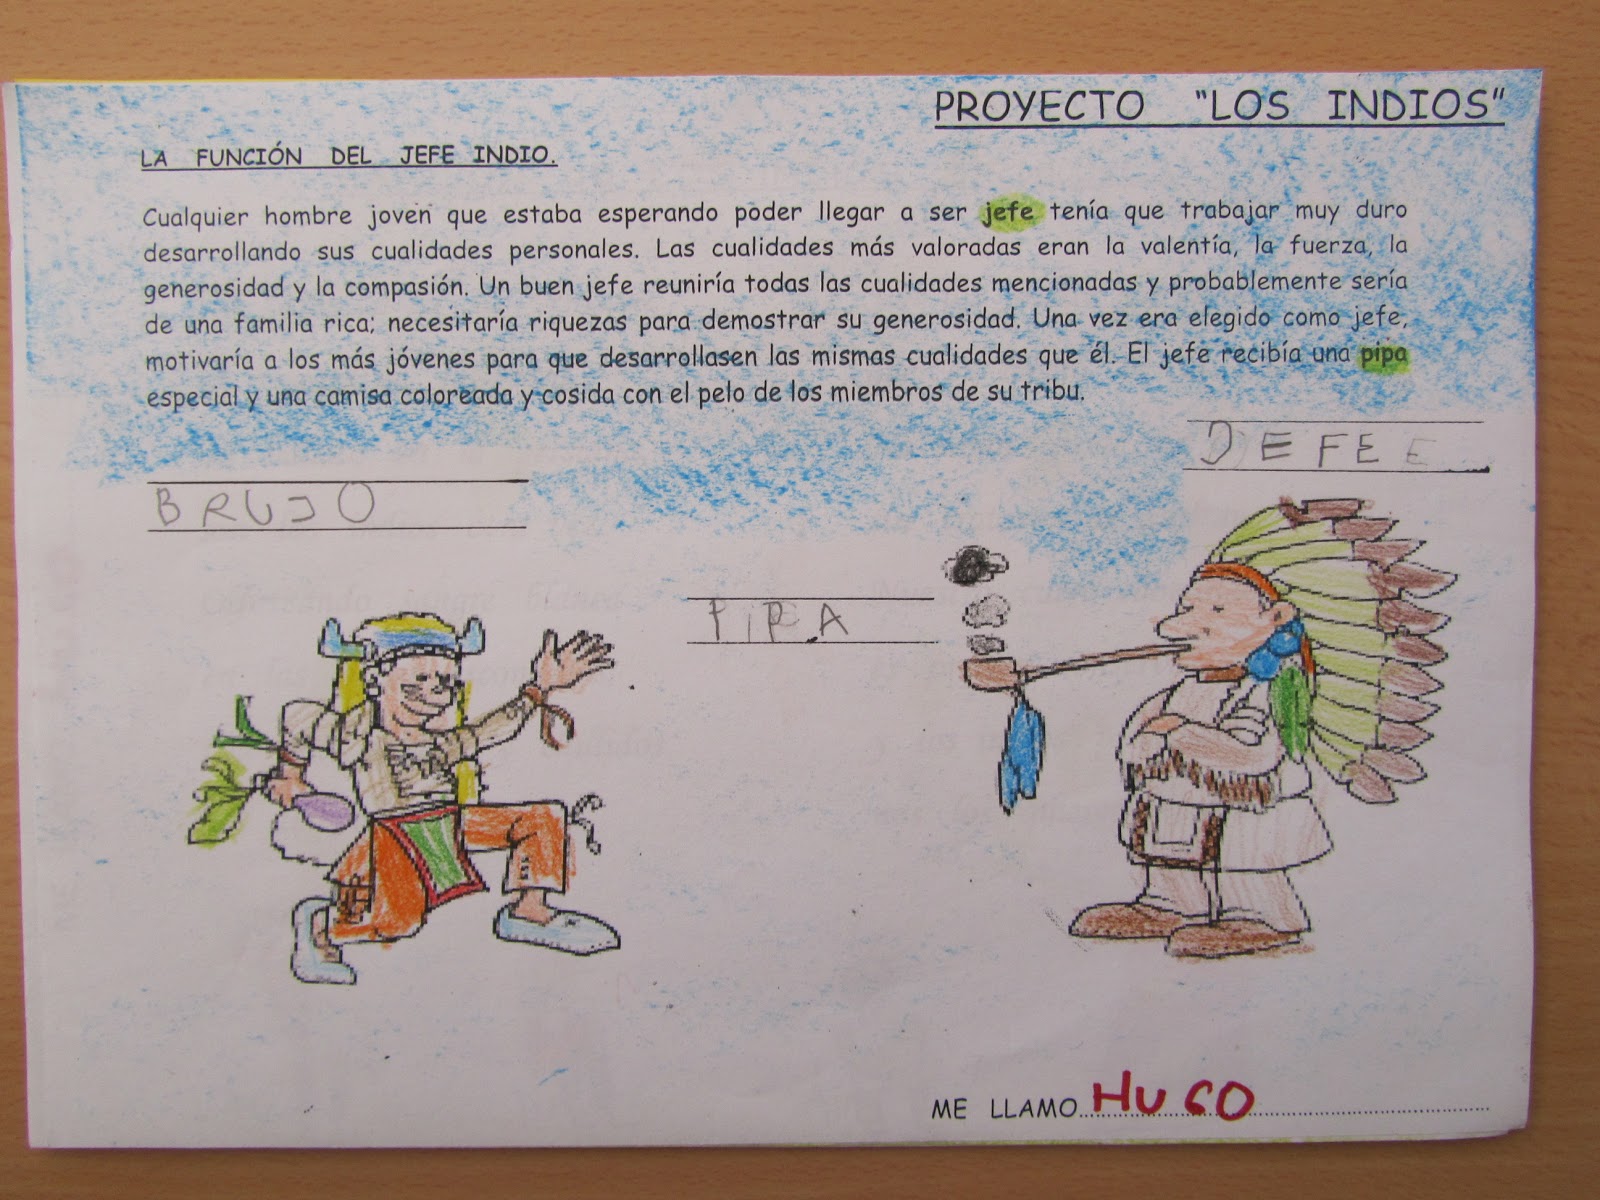 PROYECTO "LOS INDIOS"
LA FUNCIÓN DEL JEFE INDIO.
Cualquier hombre joven que estaba esperando poder llegar a ser jefe tenía que trabajar muy duro
desarrollando sus cualidades personales. Las cualidades más valoradas eran la valentía, la fuerza, la
generosidad y la compasión. Un buen jefe reuniría todas las cualidades mencionadas y probablemente sería
de una familia rica; necesitaría riquezas para demostrar su generosidad. Una vez era elegido como jefe,
motivaría a los más jóvenes para que desarrollasen las mismas cualidades que él. El jefe recibía una pipa
especial y una camisa coloreada y cosida con el pelo de los miembros de su tribu.
JEFE
BRUJO
PIPA
ME LLAMO HUGO